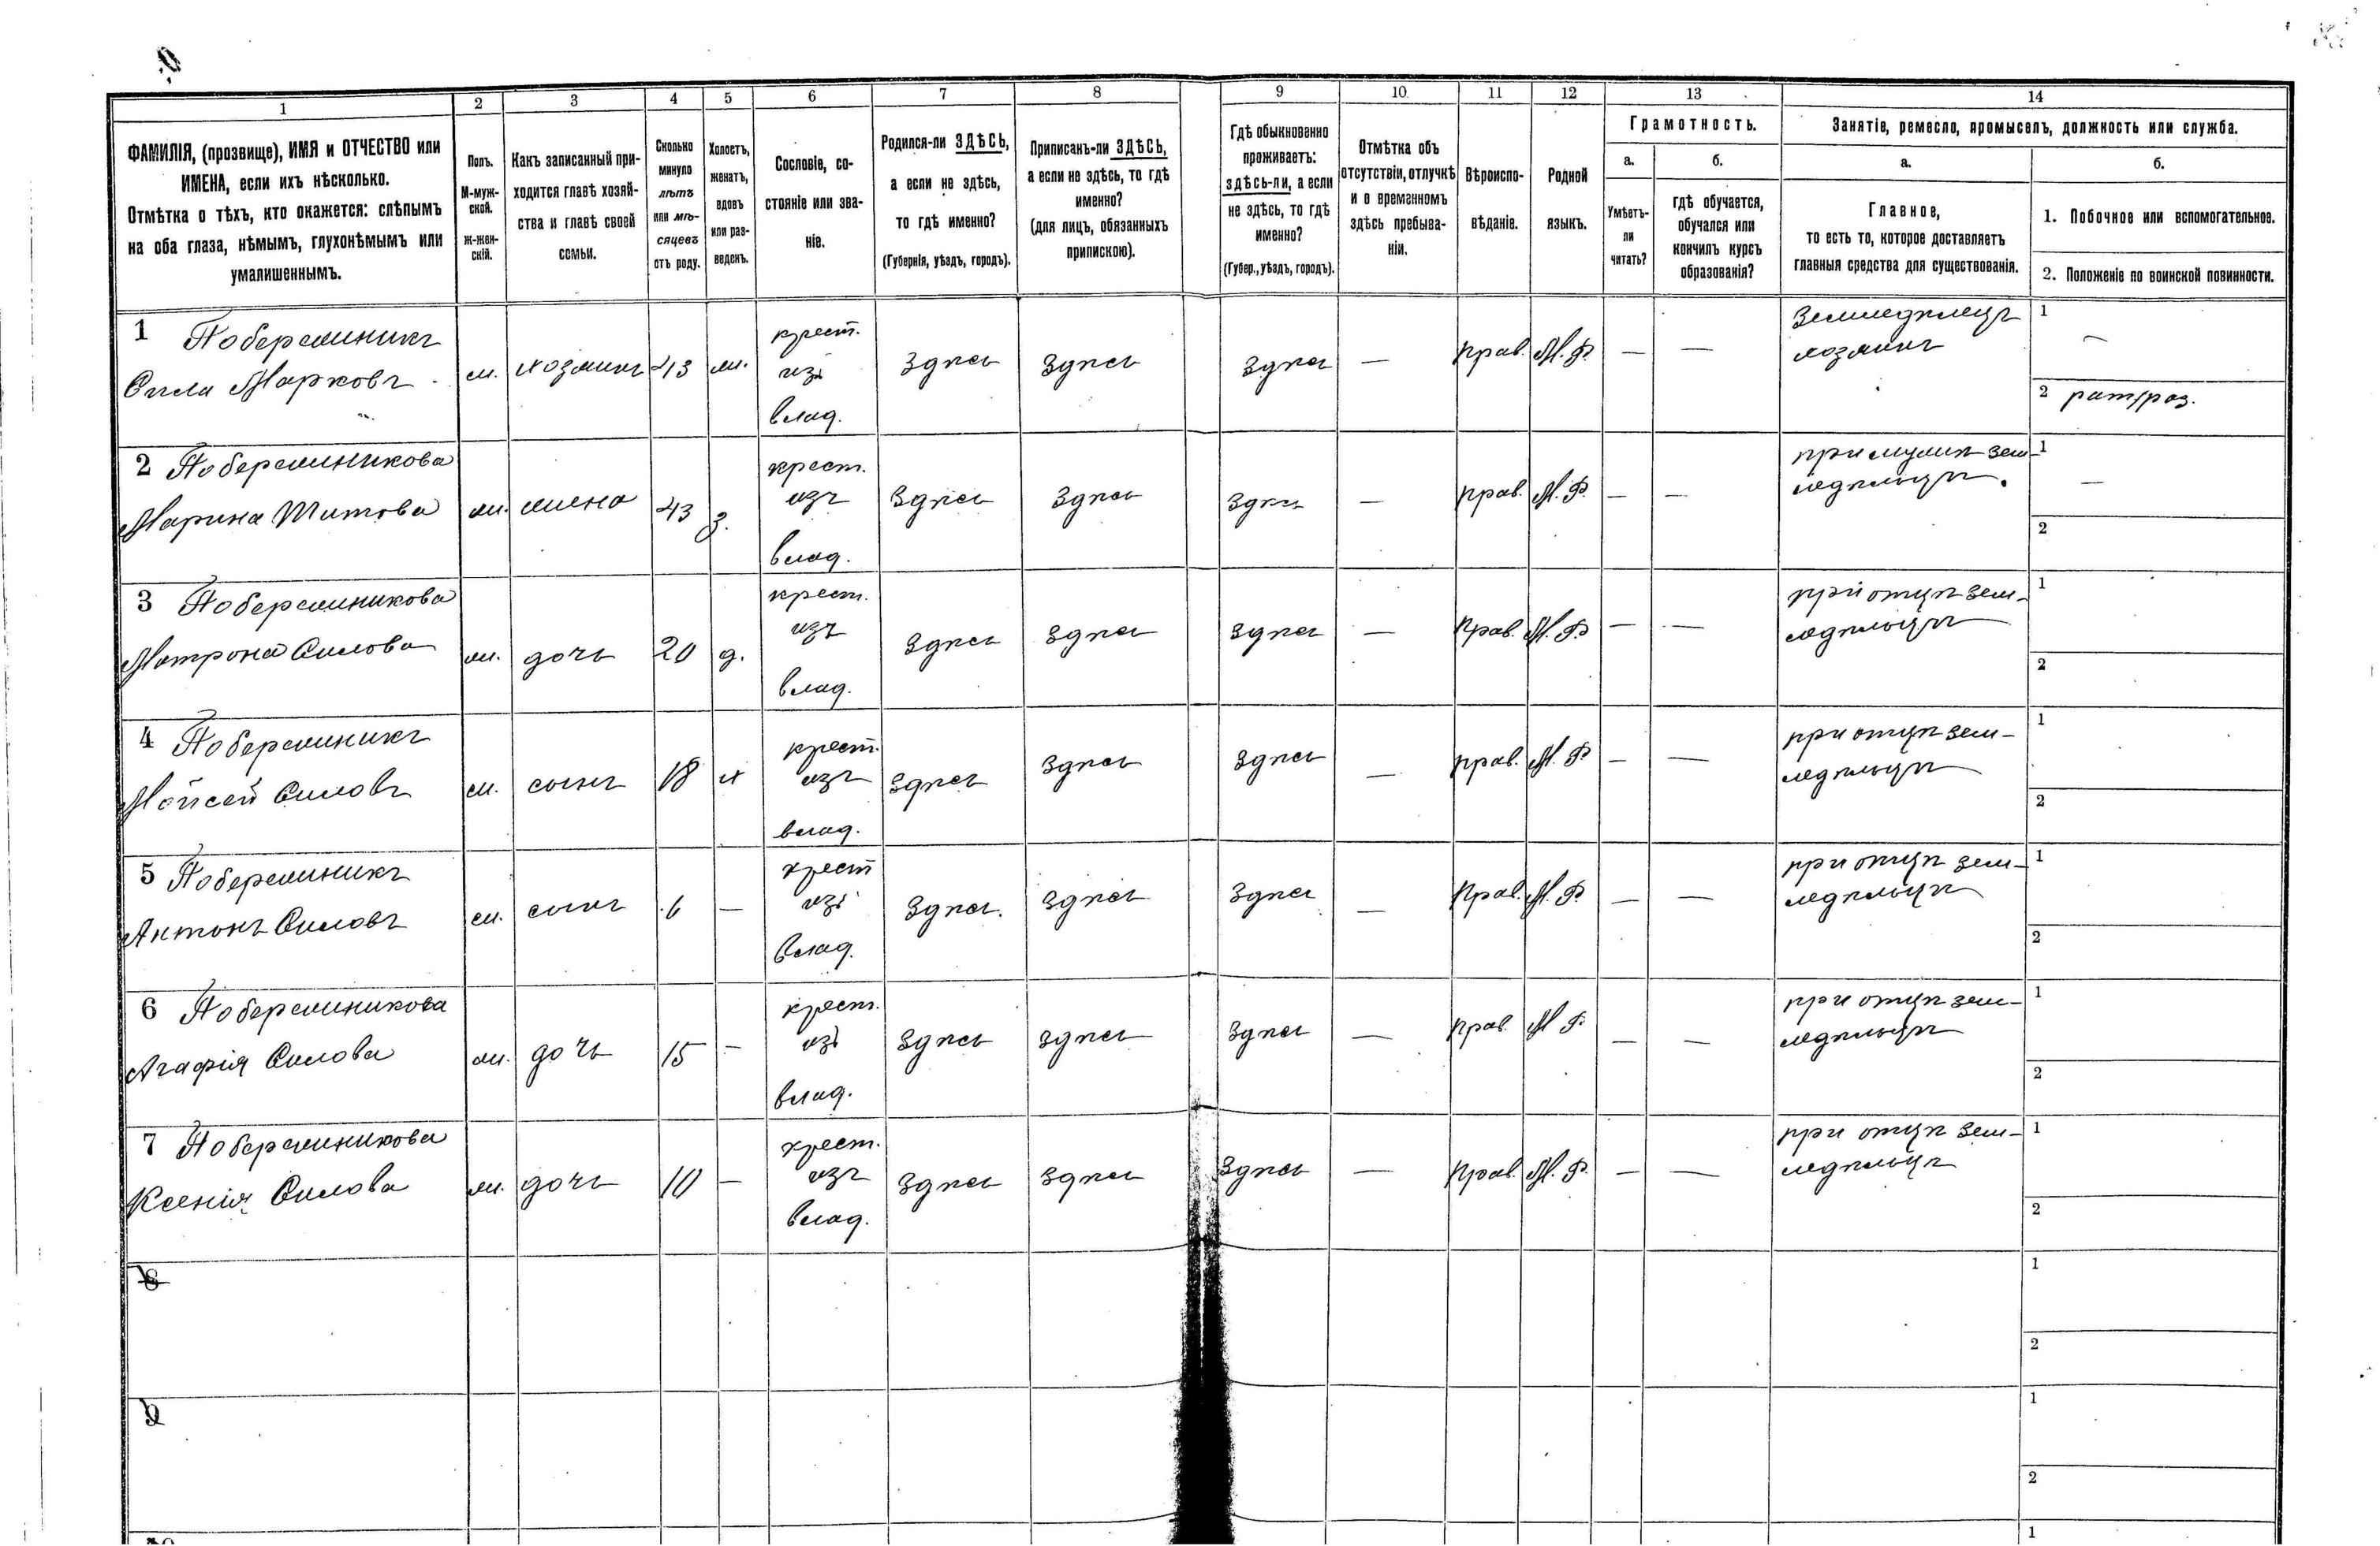 1 2 3 4 5 6 7 8 9 10. 11 12 13 14
ФАМИЛІЯ, (прозвище), ИМЯ и ОТЧЕСТВО или
ИМЕНА, если ихъ нѣсколько.
Отмѣтка о тѣхъ, кто окажется: слѣпымъ
на оба глаза, нѣмымъ, глухонѣмымъ или
умалишеннымъ.
Полъ.
М-муж-
ской.
ж-жен-
скій.
Какъ записанный при-
ходится главѣ хозяй-
ства и главѣ своей
семьи.
Сколько
минуло
лѣтъ
или мѣ-
сяцевъ
отъ роду.
Холостъ,
женатъ,
вдовъ
или раз-
веденъ.
Сословіе, со-
стояніе или зва-
ніе.
Родился-ли ЗДѢСЬ,
а если не здѣсь,
то гдѣ именно?
(Губернія, уѣздъ, городъ).
Приписанъ-ли ЗДѢСЬ,
а если не здѣсь, то гдѣ
именно?
(для лицъ, обязанныхъ
припискою).
Гдѣ обыкновенно
проживаетъ:
здѣсь-ли, а если
не здѣсь, то гдѣ
именно?
(Губер., уѣздъ, городъ).
Отмѣтка объ
отсутствіи, отлучкѣ
и о временномъ
здѣсь пребыва-
ніи.
Вѣроиспо-
вѣданіе.
Родной
языкъ.
Грамотность.
а.
Умѣетъ-
ли
читать?
б.
гдѣ обучается,
обучался или
кончилъ курсъ
образованія?
Занятіе, ремесло, промыселъ, должность или служба.
а.
Главное,
то есть то, которое доставляетъ
главныя средства для существованія.
б.
1. Побочное или вспомогательное.
2. Положеніе по воинской повинности.
1 Побережникъ
Сила Марковъ
м. хозяинъ 43 ж.
крест.
изъ
влад.
здѣсь здѣсь здѣсь — прав. М. Ф. — —
Земледѣлецъ
хозяинъ
1 —
2 рат/раз.
2 Побережникова
Марина Титова
ж. жена 43 з.
крест.
изъ
влад.
здѣсь здѣсь здѣсь — прав. М. Ф. — —
при мужѣ зем-
ледѣльцѣ.
1 —
2
3 Побережникова
Матрона Силова
ж. дочь 20 д.
крест.
изъ
влад.
здѣсь здѣсь здѣсь — прав. М. Ф. — —
при отцѣ зем-
ледѣльцѣ
1
2
4 Побережникъ
Мойсей Силовъ
м. сынъ 18 х
крест.
изъ
влад.
здѣсь здѣсь здѣсь — прав. М. Ф — —
при отцѣ зем-
ледѣльцѣ
1
2
5 Побережникъ
Антонъ Силовъ
м. сынъ 6 —
крест
изъ
влад.
здѣсь. здѣсь здѣсь — прав. М. Ф. — —
при отцѣ зем-
ледѣльцѣ
1
2
6 Побережникова
Агафія Силова
ж. дочь 15 —
крест.
изъ
влад.
здѣсь здѣсь здѣсь — прав. М Ф. — —
при отцѣ зем-
ледѣльцѣ
1
2
7 Побережникова
Ксенія Силова
ж. дочь 10 —
крест.
изъ
влад.
здѣсь здѣсь здѣсь — прав. М. Ф. — —
при отцѣ зем-
ледѣльцѣ
1
2
8
1
2
9
1
2
1